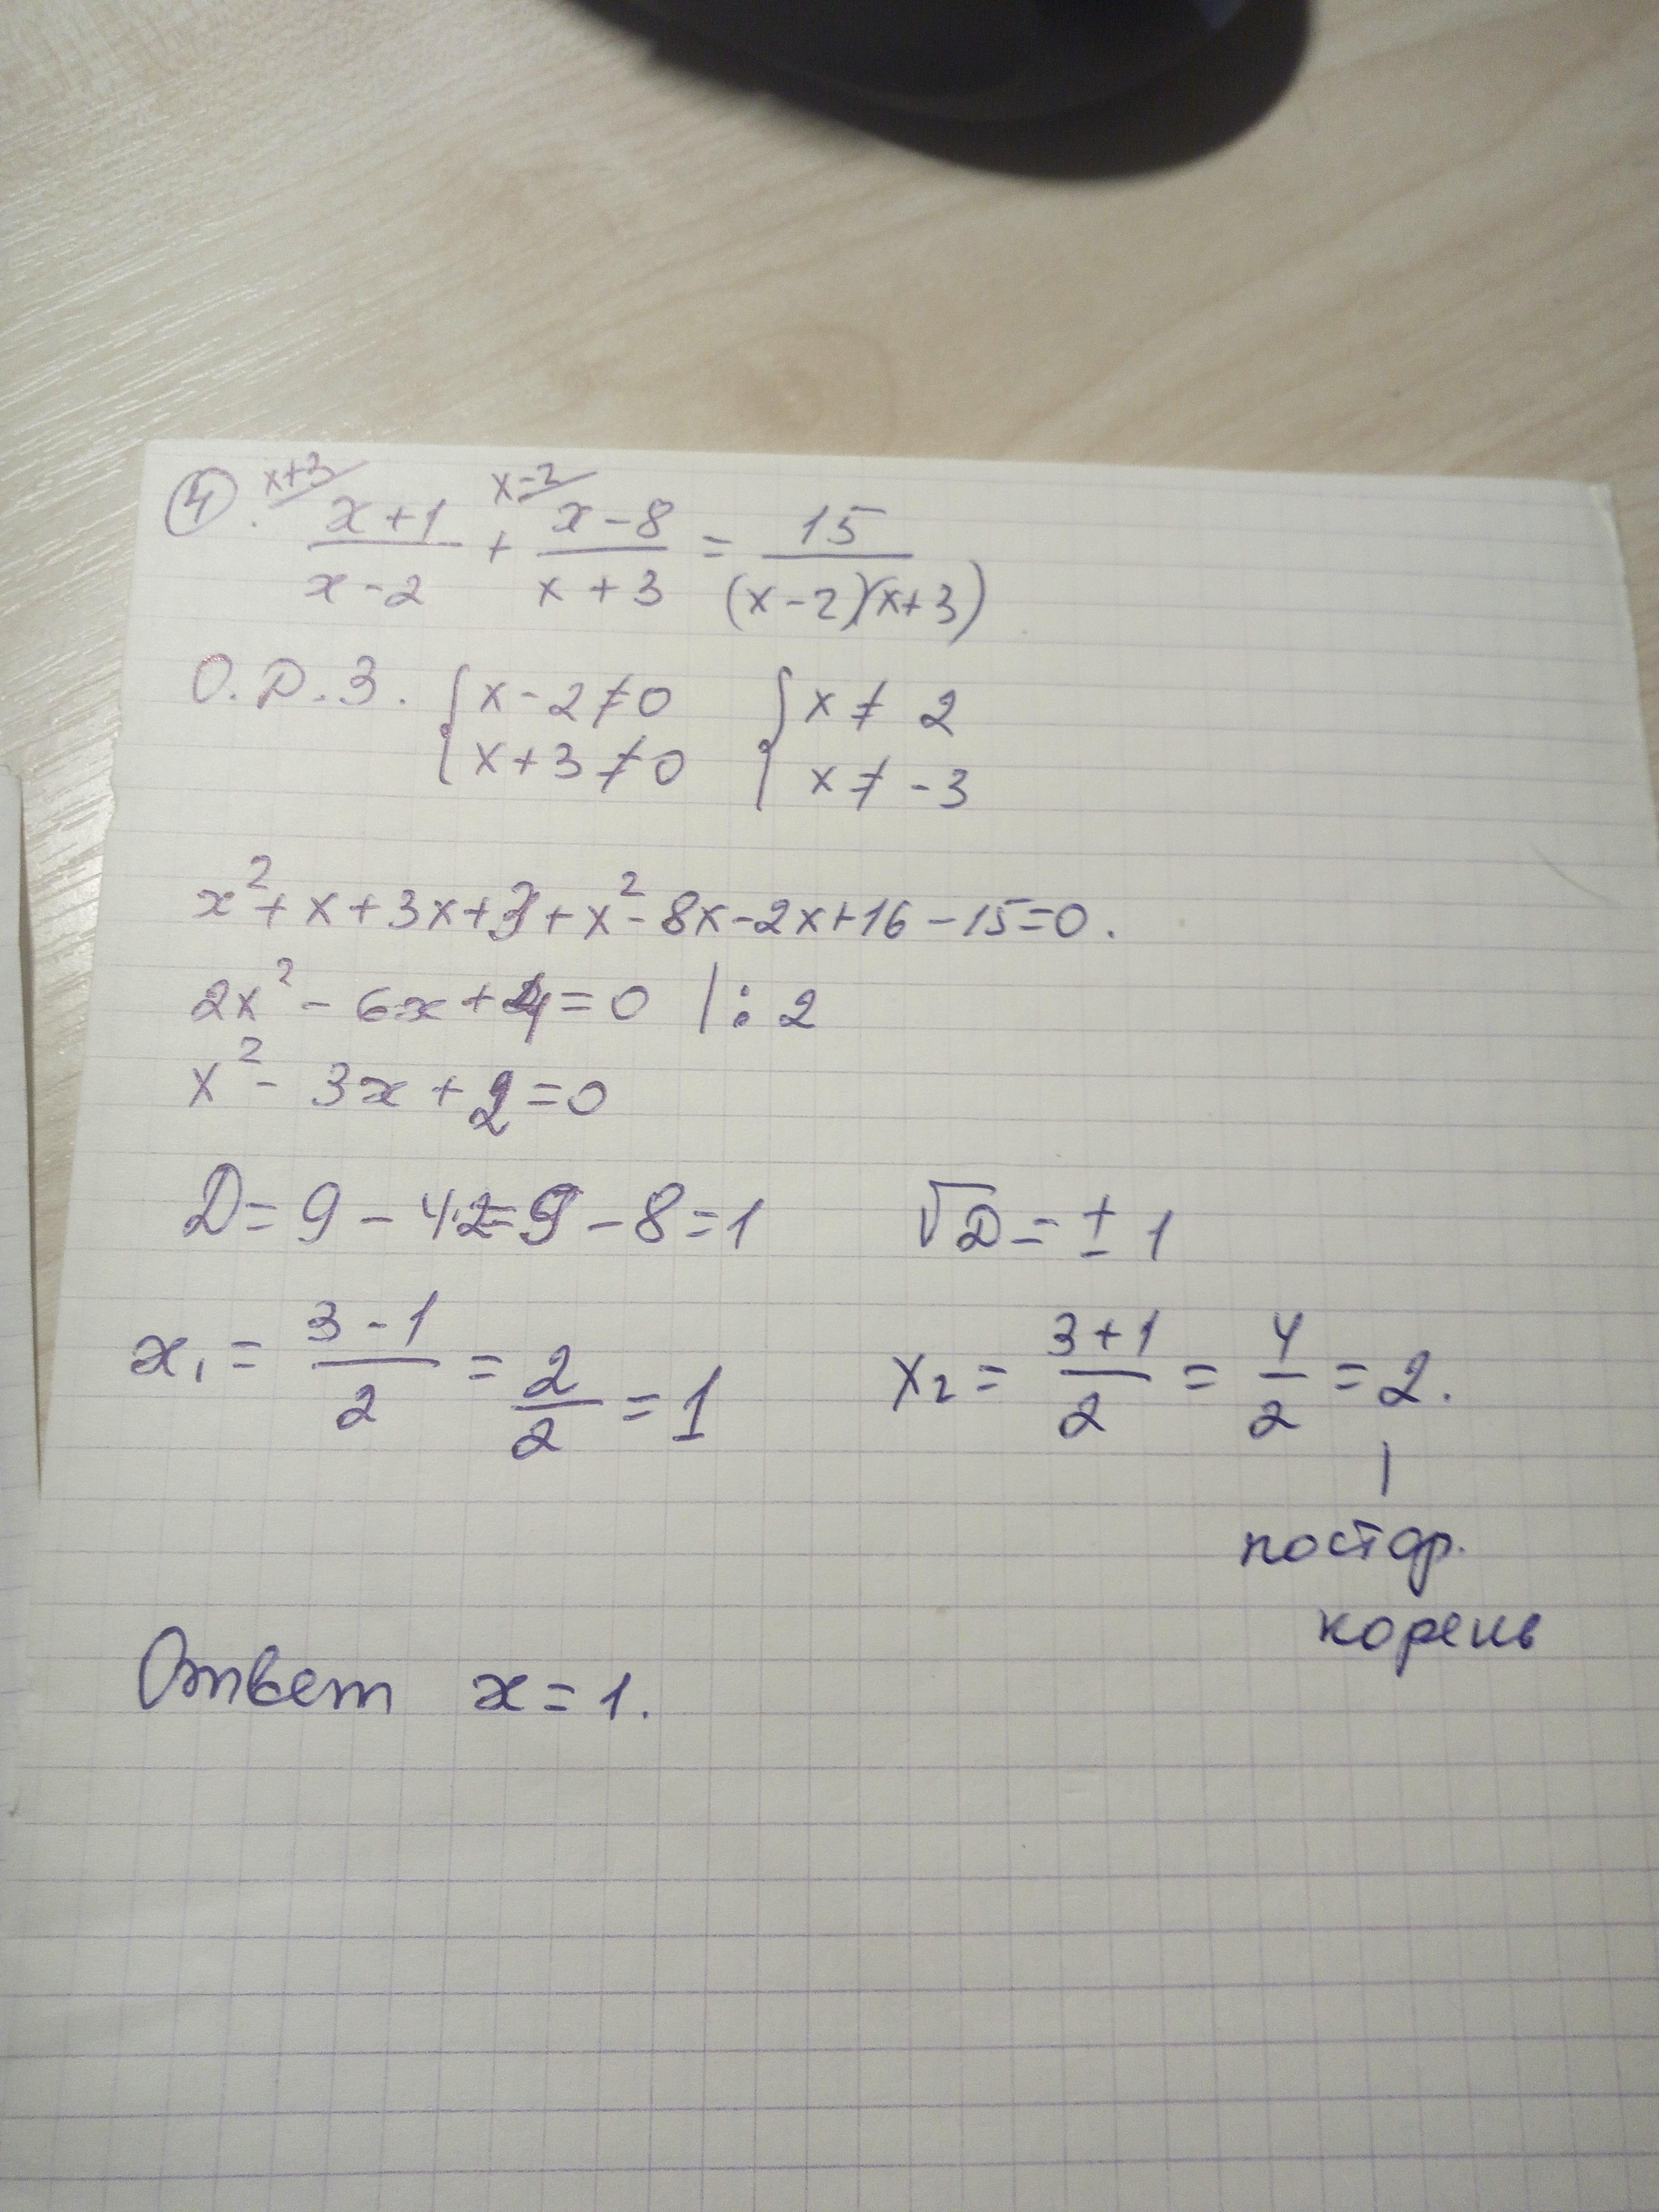 x+3 x-2
④. x+1/x-2 + x-8/x+3 = 15/(x-2)(x+3)
О.Д.З. { x-2≠0 { x≠ 2
x+3≠0 x≠ -3
x²+x+3x+3+x²-8x-2x+16-15=0.
2x²-6x+4=0 |:2
x²-3x+2=0
D=9-4·2=9-8=1 √D=±1
x₁=3-1/2=2/2=1 x₂=3+1/2=4/2=2.
постор.
корень
Ответ x=1.